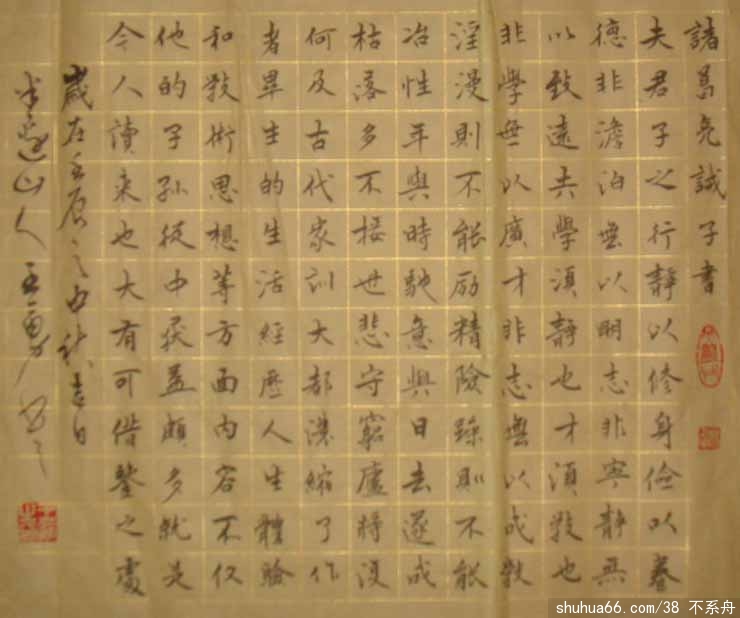 諸葛亮誡子書
夫君子之行靜以修身儉以養
德非澹泊無以明志非寧靜無
以致遠夫學須靜也才須敩也
非學無以廣才非志無以成敩
淫漫則不能励精險躁則不能
冶性年與時馳意與日去遂成
枯落多不接世悲守窮廬將復
何及古代家训大都濃縮了作
者畢生的生活經歷人生體驗
和敩術思想等方面内容不仅
他的子孫從中获益頗多就是
令人讀来也大有可借鑒之處
歲在壬辰之中秋吉日
山人王
shuhua66.com/38 不系舟